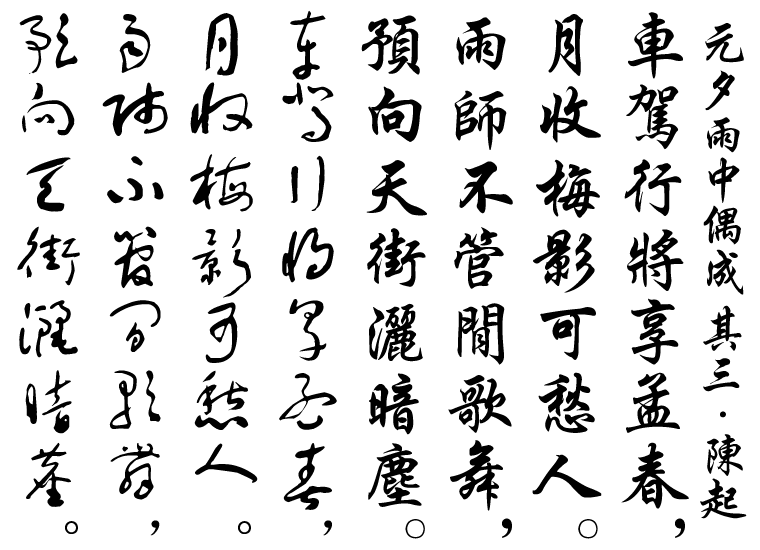 元夕雨中偶成 其三．陳起
車駕行將享孟春，
月收梅影可愁人。
雨師不管閒歌舞，
預向天街灑暗塵。
車駕行將享孟春，
月收梅影可愁人。
雨師不管閒歌舞，
預向天街灑暗塵。